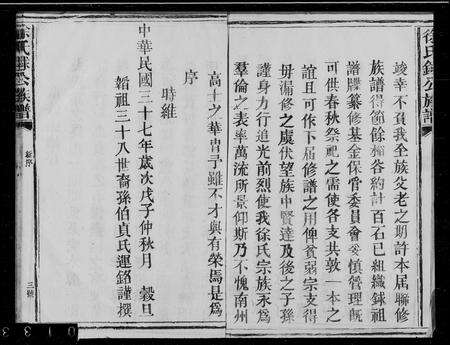 徐氏銶公族譜
竣幸不負我全族父老之期許本届聯修
族譜得節餘榖各約計百石已組織銶祖
譜牒纂修基金保管委員會妥慎管理旣
可供春秋祭祀之需使各支共敦一本之
誼且可作下届修譜之用俾貧弱宗支得
毋漏修之虞伏望族中賢達及後之子孫
謹身力行追光前烈使我徐氏宗族永爲
羣倫之表率萬流所景仰斯乃不愧南州
高士之華胄予雖不才與有榮焉是爲
序
時維
中華民國三十七年歲次戊子仲秋月 穀旦
銶祖三十八世裔孫伯貞氏運鎔謹撰
新序
三號
0133